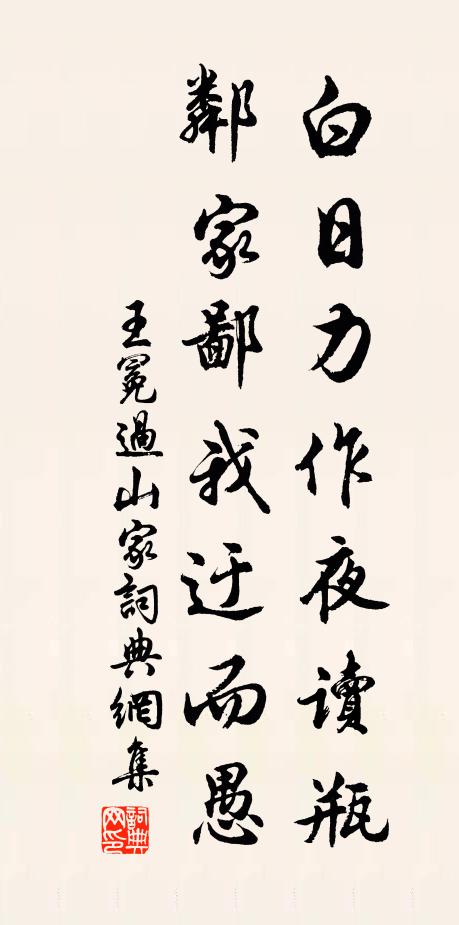 白日力作夜讀瓶
鄰家鄙我迂而愚
王冕過山家詞典網集
詞典網印